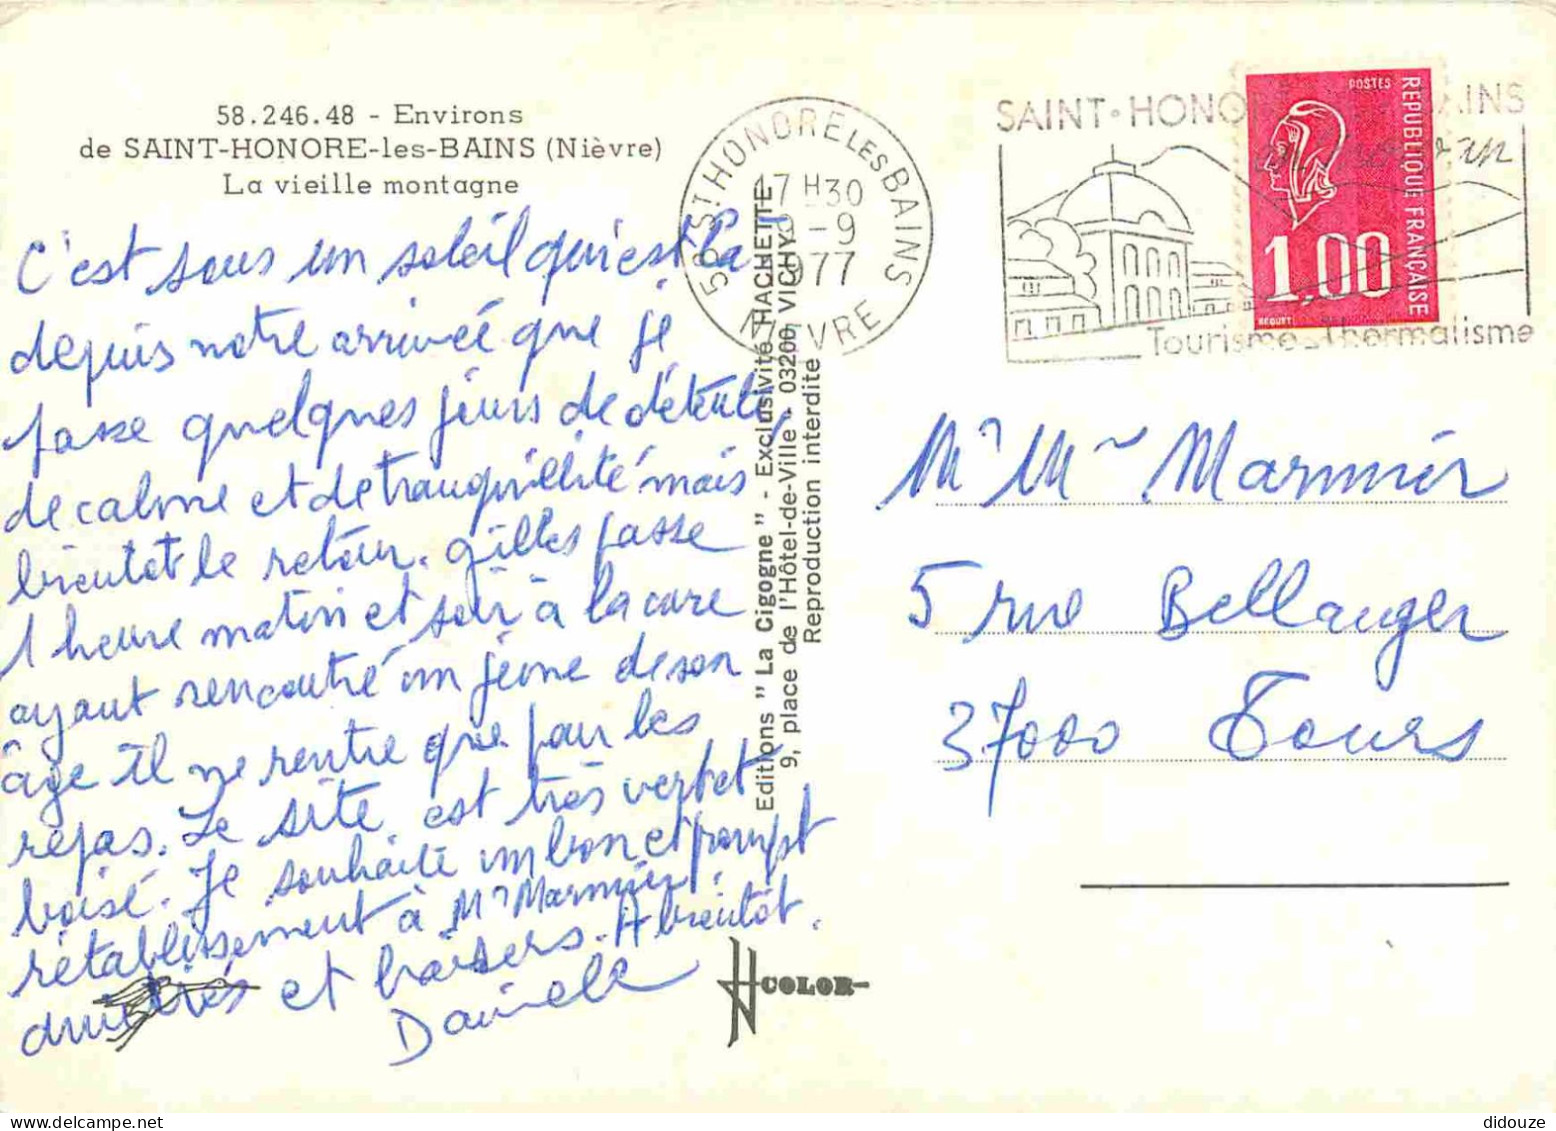 58.246.48 - Environs
de SAINT-HONORE-les-BAINS (Nièvre)
La vieille montagne
C'est sous un soleil qui est là
depuis notre arrivée que je
passe quelques jours de détente,
de calme et de tranquillité mais
bientot le retour. Gilles passe
1 heure matin et soir à la cure
ayant rencontré un jeune de son
âge il ne rentre que pour les
repas. Le site est très vert et
boisé. Je souhaite un bon et prompt
rétablissement à Mr Marmier.
amitiés et baisers. A bientot.
Danielle
Editions "La Cigogne" - Exclusivité HACHETTE
9, place de l'Hôtel-de-Ville - 03200 VICHY
Reproduction interdite
COLOR
58 ST HONORE LES BAINS
17 H 30
-9
1977
NIEVRE
SAINT-HONO AINS
en Morvan
Tourisme - Thermalisme
POSTES
REPUBLIQUE FRANÇAISE
1,00
BEQUET
Mr Mme Marmier
5 rue Bellanger
37000 Tours
didouze